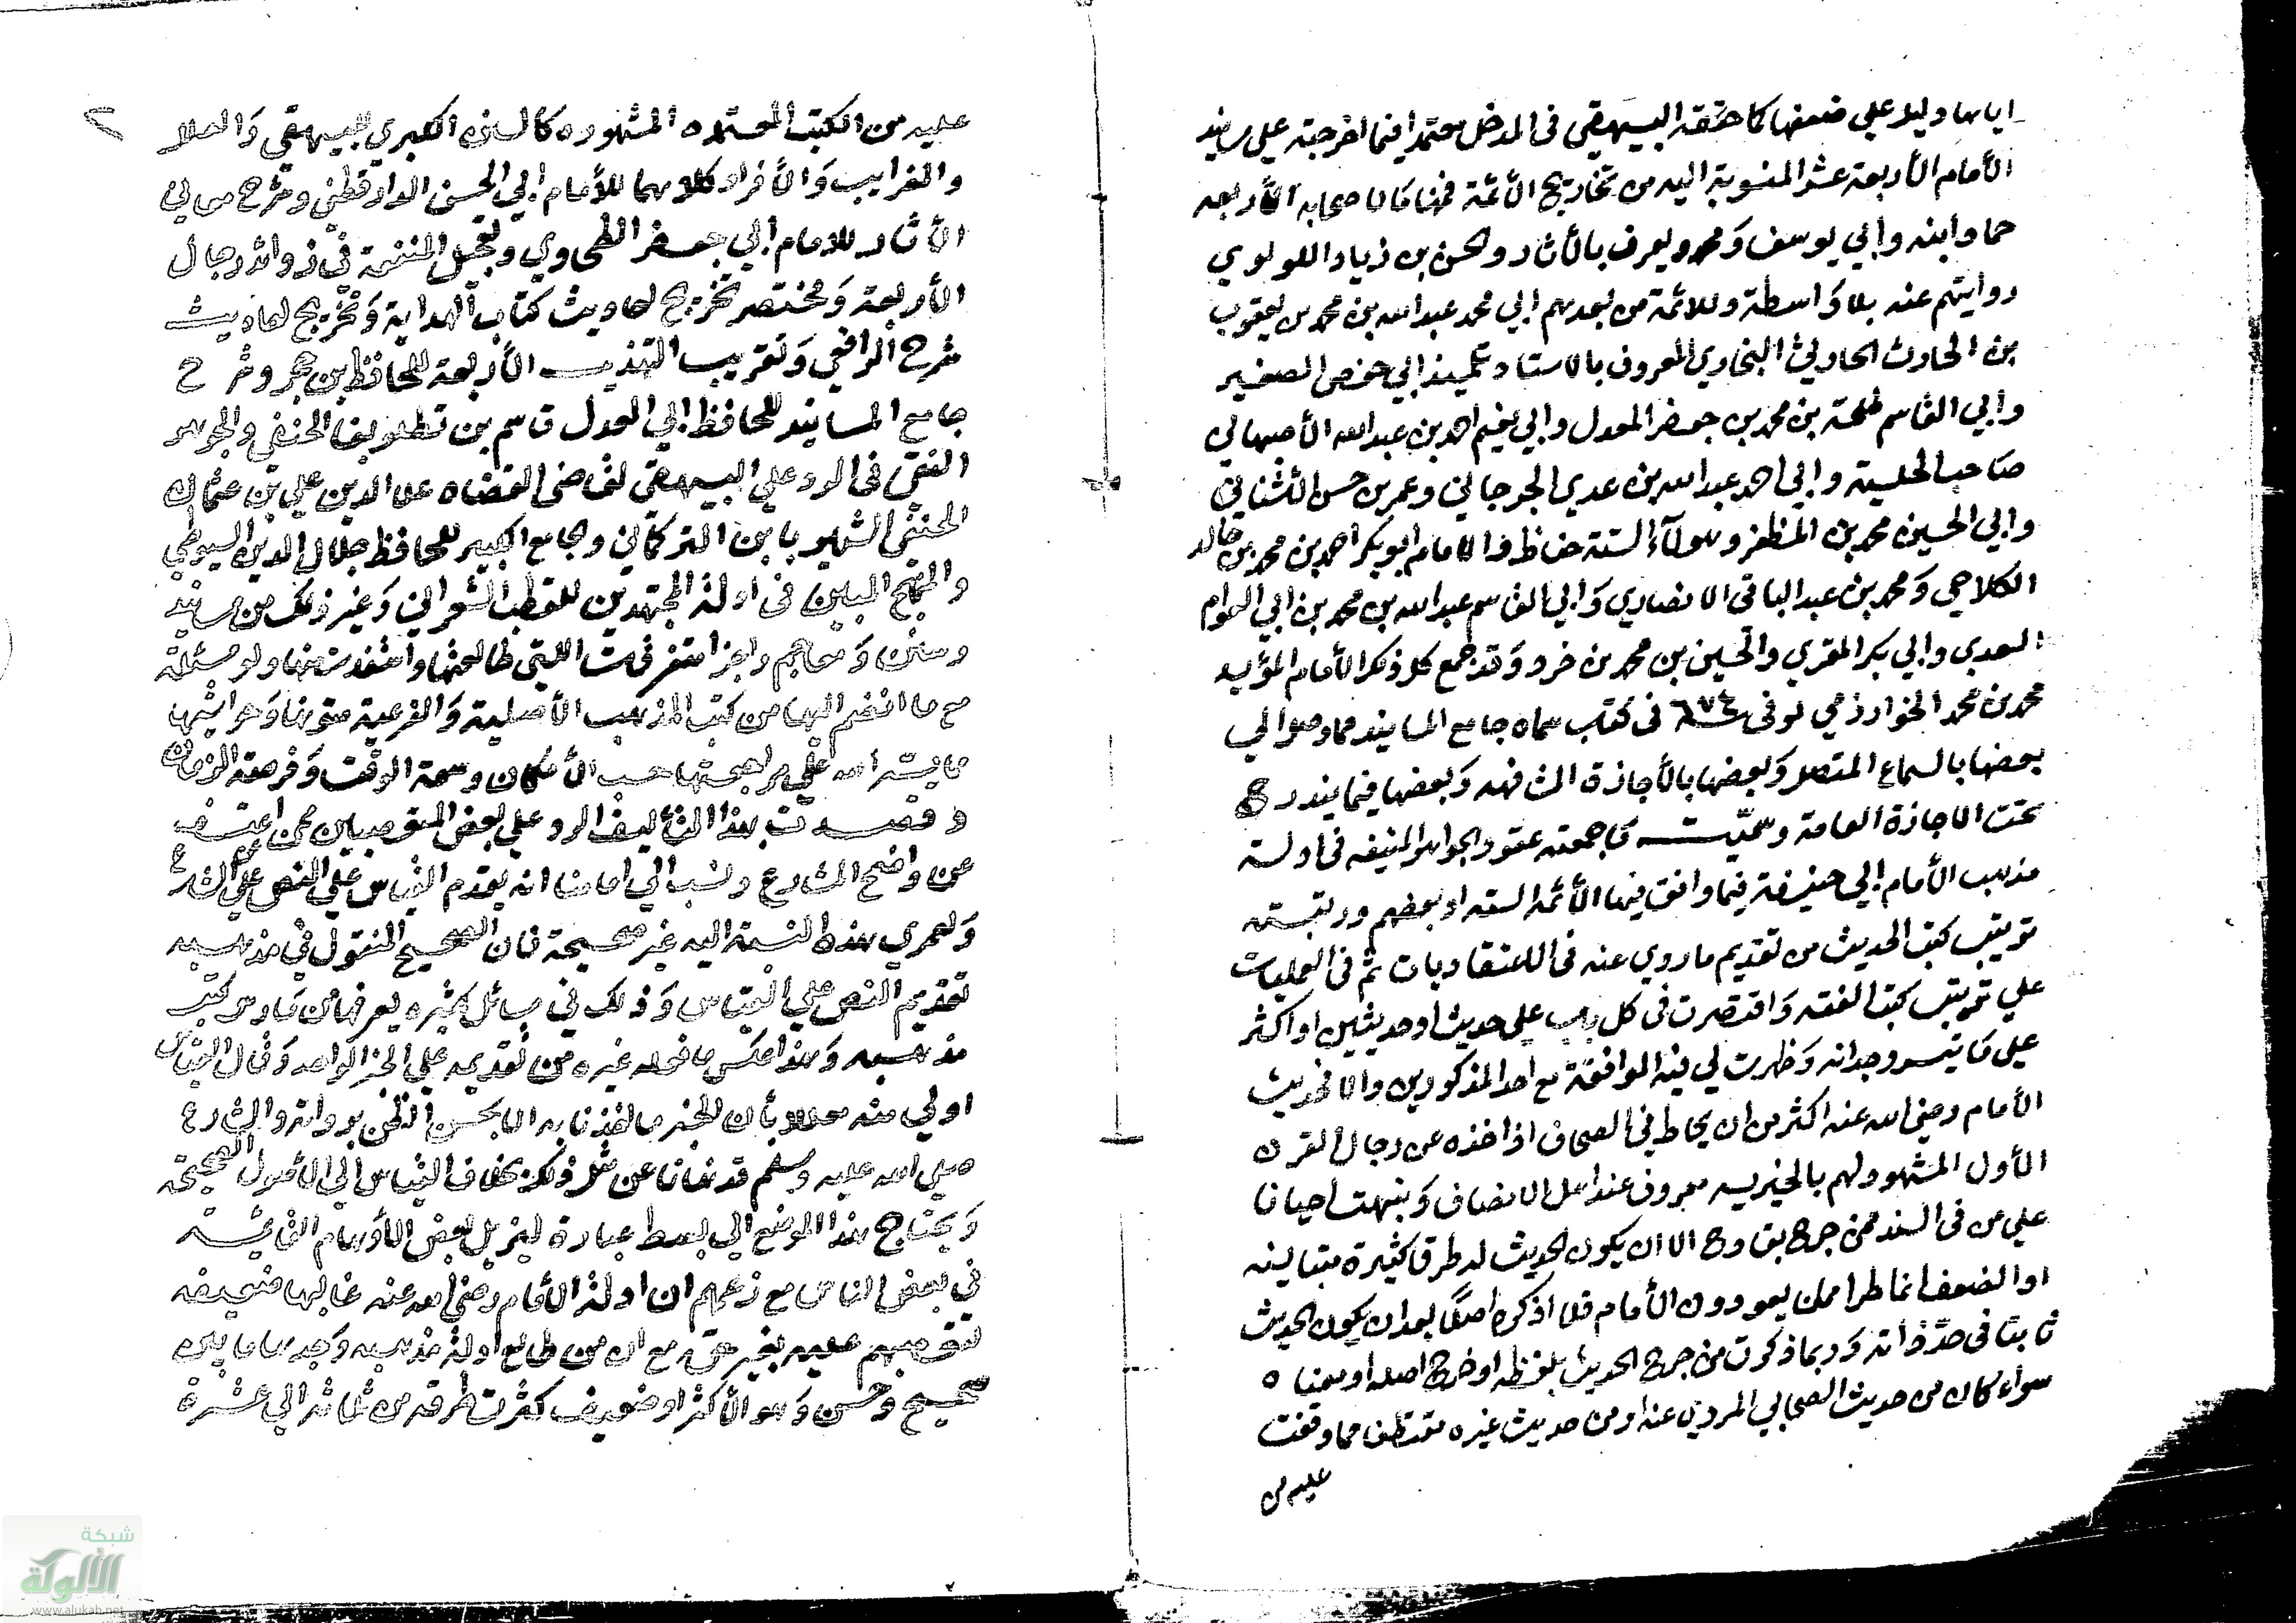 اياها دليلا علي ضعفها كما حققه البيهقي في المدخل معتمدا فيما اخرجته علي مسانيد
الأمام الأربعة عشر المنسوبة اليه من تخاريج الأئمة فمنها ما لاصحابه الأربعه
حماد ابنه وأبي يوسف ومحمد ويعرف بالأثار والحسن بن زياد اللولوي
روايتهم عنه بلا واسطة وللائمة من بعدهم ابي محمد عبد الله بن محمد بن يعقوب
بن الحارث الحارثي البخاري المعروف بالاستاد تلميذ ابي حفص الصغير
وابي القاسم طلحة بن محمد بن جعفر المعدل وابي نعيم احمد بن عبد الله الأصبهاني
صاحب الحلية وابي احمد عبد الله بن عدي الجرجاني وعمر بن حسن الأشناني
وابي الحسين محمد بن المظفر وهولآء الستة حفاظ والامام ابو بكر احمد بن محمد بن خالد
الكلاعي ومحمد بن عبد الباقي الانصاري وابي القاسم عبد الله بن محمد بن ابي العوام
السعدي وابي بكر المقري والحسين بن محمد بن خسرو وقد جمع كل ذلك الأمام المؤيد
محمد بن محمد الخوارزمي توفي ٦٧٤ في كتاب سماه جامع المسانيد مما وصل الي
بعضها بالسماع المتصل وبعضها بالأجازة المشافهه وبعضها فيما يندرج
تحت الاجازة العامة وسميت ما جمعته عقود الجواهر المنيفه في ادلة
مذهب الأمام ابي حنيفة فيما وافق فيها الأئمة الستة او بعضهم ورتبته
ترتيب كتب الحديث من تقديم ما روي عنه في الاعتقاديات ثم في العمليات
علي ترتيب كتب الفقه واقتصرت في كل باب علي حديث او حديثين او اكثر
علي ما تيسر وجدانه وظهرت لي فيه الموافقة مع احد المذكورين والا فحديث
الأمام رضي الله عنه اكثر من ان يحاط في الصحاف اذا خذه عن رجال القرن
الأول المشهود لهم بالخيريه معروف عند اهل الانصاف ونبهت احيانا
علي من في السند ممن جرح بقادح الا ان يكون لحديث له طرق كثيرة متباينه
او الضعف انما طرا ممن بعد دون الأمام فلا اذكره اصلا بعد ان يكون الحديث
ثابتا في حد ذاته وربما ذكرت من خرج الحديث بلفظه او خرج اصله او معناه
سواء كان من حديث الصحابي المروي عنه او من حديث غيره مقتطف مما وقفت
عليه من
عليه من الكتب المعتمده المشهوره كالسنن الكبري للبيهقي والعلل
والغرايب والأفراد كلاهما للأمام ابي الحسن الدارقطني وشرح معاني
الأثار للامام ابي جعفر الطحاوي وتعجيل المنفعة في زوائد رجال
الأربعة ومختصر تخريج احاديث كتاب الهداية وتخريج احاديث
شرح الرافعي وتقريب التهذيب الأربعة للحافظ بن حجر وشرح
جامع المسانيد للحافظ ابي العدل قاسم بن قطلوبغا الحنفي والجوهر
النقي في الرد علي البيهقي لقاضي القضاه علا الدين علي بن عثمان
الحنفي الشهير بابن التركماني وجامع الكبير للحافظ جلال الدين السيوطي
والمنهج المبين في ادلة المجتهدين للقطب الشعراني وغير ذلك من مسانيد
وسنن ومعاجم واجزا متفرقات اللتي طالعتها واستفدت منها ولو مسئلة
مع ما انضم اليها من كتب المذهب الأصلية والفرعية متونها وحواشيها
ما يسر الله علي مراجعتها حسب الأمكان وسعة الوقت وفرصة الزمان
وقصدت بهذا التأليف الرد علي بعض المتعصبين ممن اعتسف
عن واضح المشارع ونسب الي امامنا انه يقدم القياس علي النص علي الشارع
ولعمري هذه النسبة اليه غير صحيحة فان الصحيح المنقول في مذهبه
تقديم النص علي القياس وذلك في مسائل كثيره يعرفها من مارس كتب
مذهبه وهذا عكس ما فعله غيره من تقديمه علي الخبر الواحد وقال القياس
اولي منه معللا بأن الخبر ما اخذنا به الا بحسن الظن برواته والشارع
صلي الله عليه وسلم قد نهانا عن مثل ذلك بخلاف القياس الي الأصول الصحيحة
ويحتاج هذا الموضع الي بسط عبارة ليزيل بعض الأوهام الفاشية
في بعض الناس مع زعمهم ان ادلة الأمام رضي الله عنه غالبها ضعيفه
تعصبهم عليه بغير حق مع ان من طالع ادلة مذهبه وجدها ما بين
صحيح وحسن وهو الأكثر او ضعيف كثرت طرقه من ثلاثه الي عشرة
شبكة
الألوكة
www.alukah.net